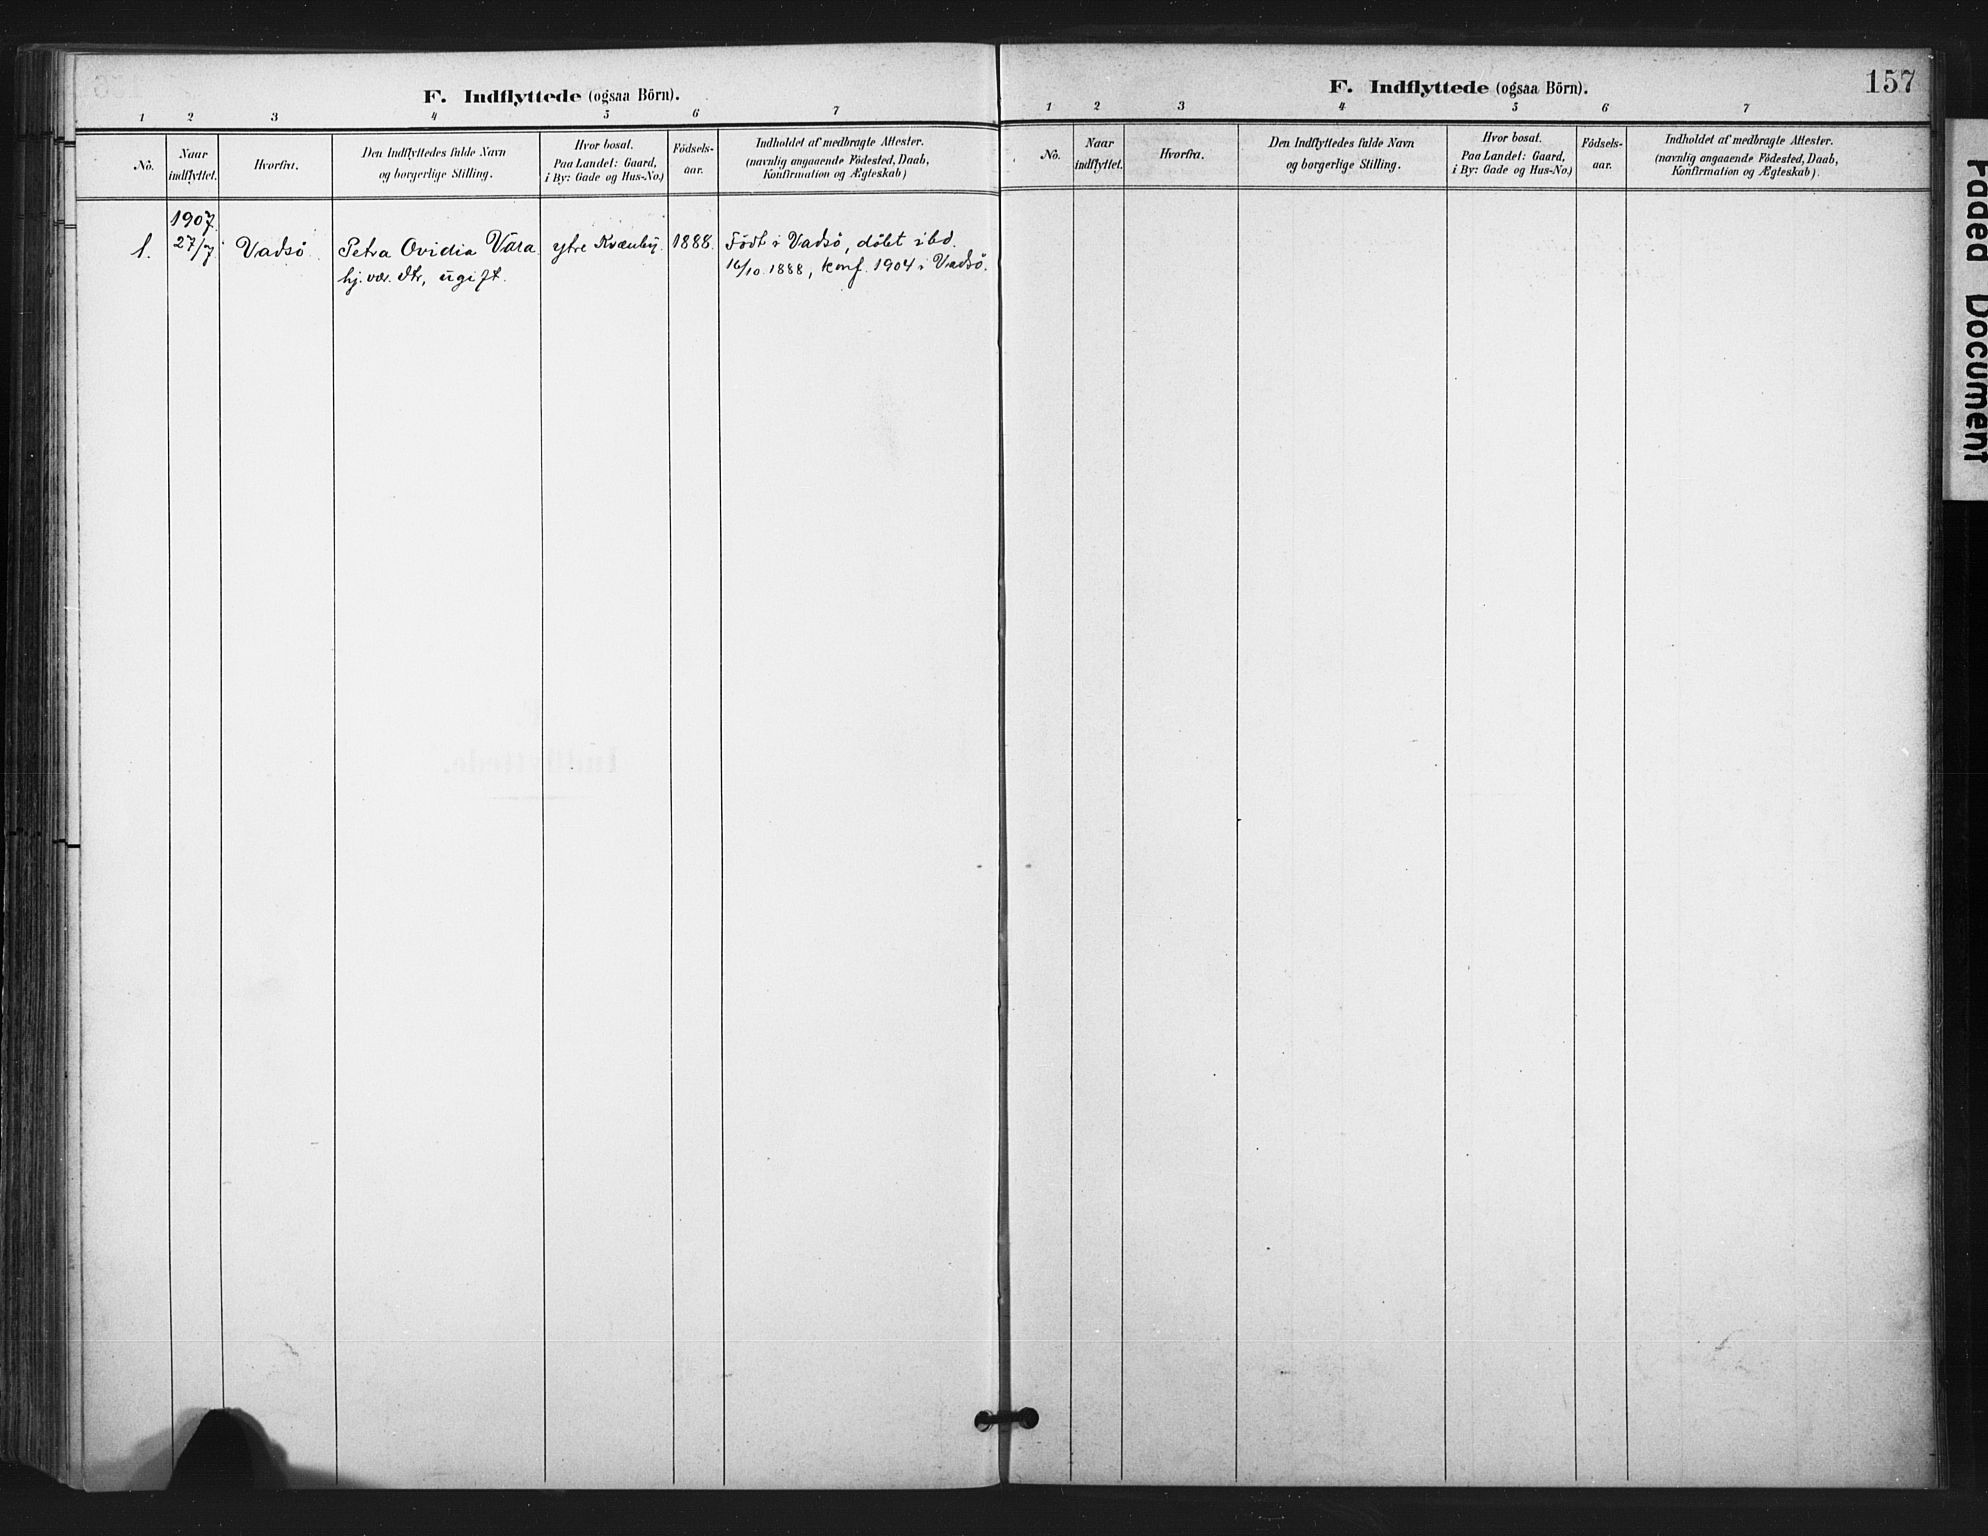 F. Indflyttede (ogsaa Börn).
1 2 3 4 5 6 7
No. Naar indflyttet. Hvorfra. Den Indflyttedes fulde Navn og borgerlige Stilling. Hvor bosat. Paa Landet: Gaard, i By: Gade og Hus-No.) Födsels-aar. Indholdet af medbragte Attester. (navnlig angaaende Födested, Daab, Konfirmation og Ægteskab)
1907
1. 27/7 Vadsö. Petra Ovidia Vara ytre Kvænby. 1888. Född i Vadsö, döbt ibd.
hj. vær. dtr, ugift. 16/10. 1888, konf. 1904 i Vadsö.
F. Indflyttede (ogsaa Börn).
157
1 2 3 4 5 6 7
No. Naar indflyttet. Hvorfra. Den Indflyttedes fulde Navn og borgerlige Stilling. Hvor bosat. Paa Landet: Gaard, i By: Gade og Hus-No.) Födsels-aar. Indholdet af medbragte Attester. (navnlig angaaende Födested, Daab, Konfirmation og Ægteskab).
Faded Document